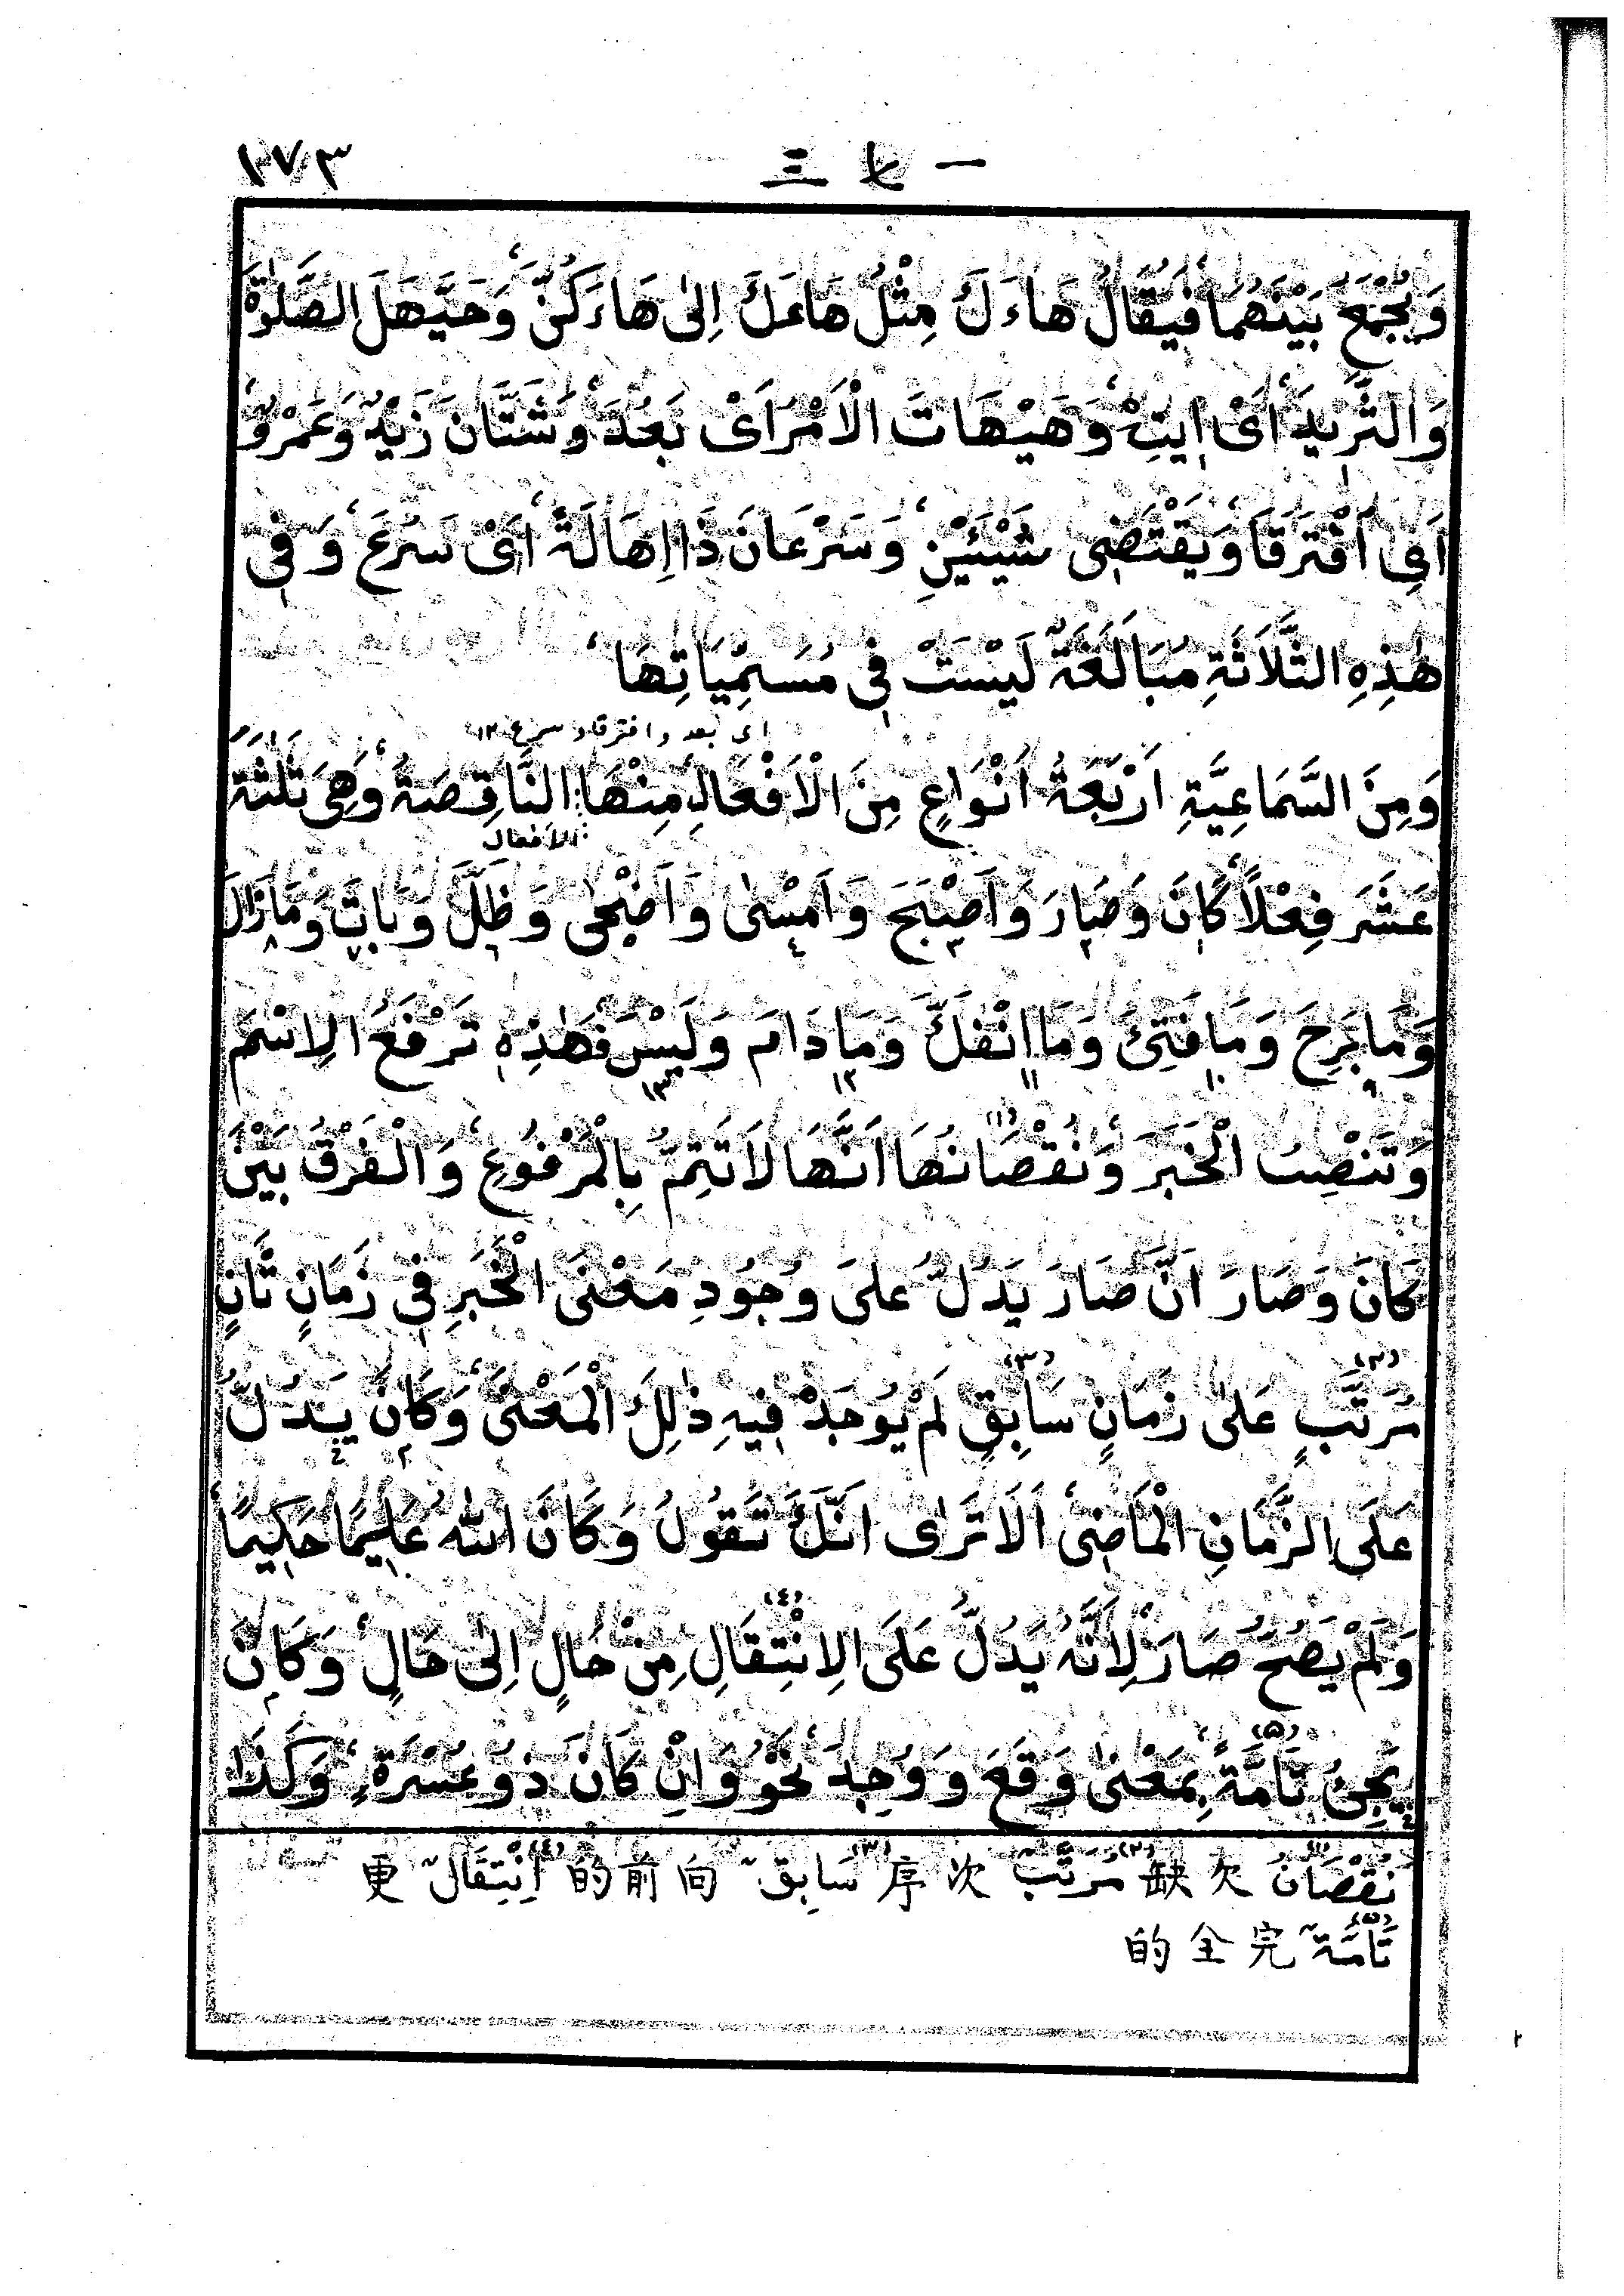 ١٧٣ 一七三
وَيُجْمَعُ بَيْنَهُمَا فَيُقَالُ هَاءَكَ مِثْلُ هَاعَكَ اِلىٰ هَاءَكُنَّ وَحَيَّهَلَ الصَّلٰوةَ
وَالثَّرِيْدَ اَىْ اِيْتِ وَهَيْهَاتَ الْاَمْرُ اَىْ بَعُدَ وَشَتَّانَ زَيْدٌ وَعَمْرٌو
اَىِ افْتَرَقَا وَيَقْتَضِى شَيْئَيْنِ وَسَرْعَانَ ذَا اِهَالَةً اَىْ سَرُعَ وَفِى
هٰذِهِ الثَّلَاثَةِ مُبَالَغَةٌ لَيْسَتْ فِى مُسَمَّيَاتِهَا
اى بعد و افترقا و سرع ١٢
وَمِنَ السَّمَاعِيَّةِ اَرْبَعَةُ اَنْوَاعٍ مِنَ الْاَفْعَالِ مِنْهَا النَّاقِصَةُ وَهِىَ ثَلٰثَةَ
الافعال
عَشَرَ فِعْلاً كَانَ وَصَارَ وَاَصْبَحَ وَاَمْسٰى وَاَضْحٰى وَظَلَّ وَبَاتَ وَمَازَالَ
وَمَا بَرِحَ وَمَا فَتِئَ وَمَا انْفَكَّ وَمَا دَامَ وَلَيْسَ فَهٰذِهِ تَرْفَعُ الِاسْمَ
وَتَنْصِبُ الْخَبَرَ وَنُقْصَانُهَا (١) اَنَّهَا لَا تَتِمُّ بِالْمَرْفُوْعِ وَالْفَرْقُ بَيْنَ
كَانَ وَصَارَ اَنَّ صَارَ يَدُلُّ عَلىَ وُجُوْدِ مَعْنَى الْخَبَرِ فِى زَمَانٍ ثَانٍ
مُرَتَّبٍ (٢) عَلىٰ زَمَانٍ سَابِقٍ (٣) لَمْ يُوْجَدْ فِيْهِ ذٰلِكَ الْمَعْنَى وَكَانَ يَدُلُّ
عَلَى الزَّمَانِ الْمَاضِى اَلَا تَرٰى اَنَّكَ تَقُوْلُ وَكَانَ اللهُ عَلِيْمًا حَكِيْمًا
وَلَمْ يَصُحَّ صَارَ لِاَنَّهُ يَدُلُّ عَلَى الِانْتِقَالِ (٤) مِنْ حَالٍ اِلىٰ حَالٍ وَكَانَ
يَجِئُ تَامَّةً (٥) بِمَعْنٰى وَقَعَ وَوُجِدَ نَحْوُ وَاِنْ كَانَ ذُوْ عُسْرَةٍ وَكَذَا
(١) نُقْصَانٌ 欠缺 (٢) مُرَتَّبٌ 次序 (٣) سَابِقٌ 向前的 (٤) اِنْتِقَالٌ 更
(٥) تَامَّةٌ 完全的